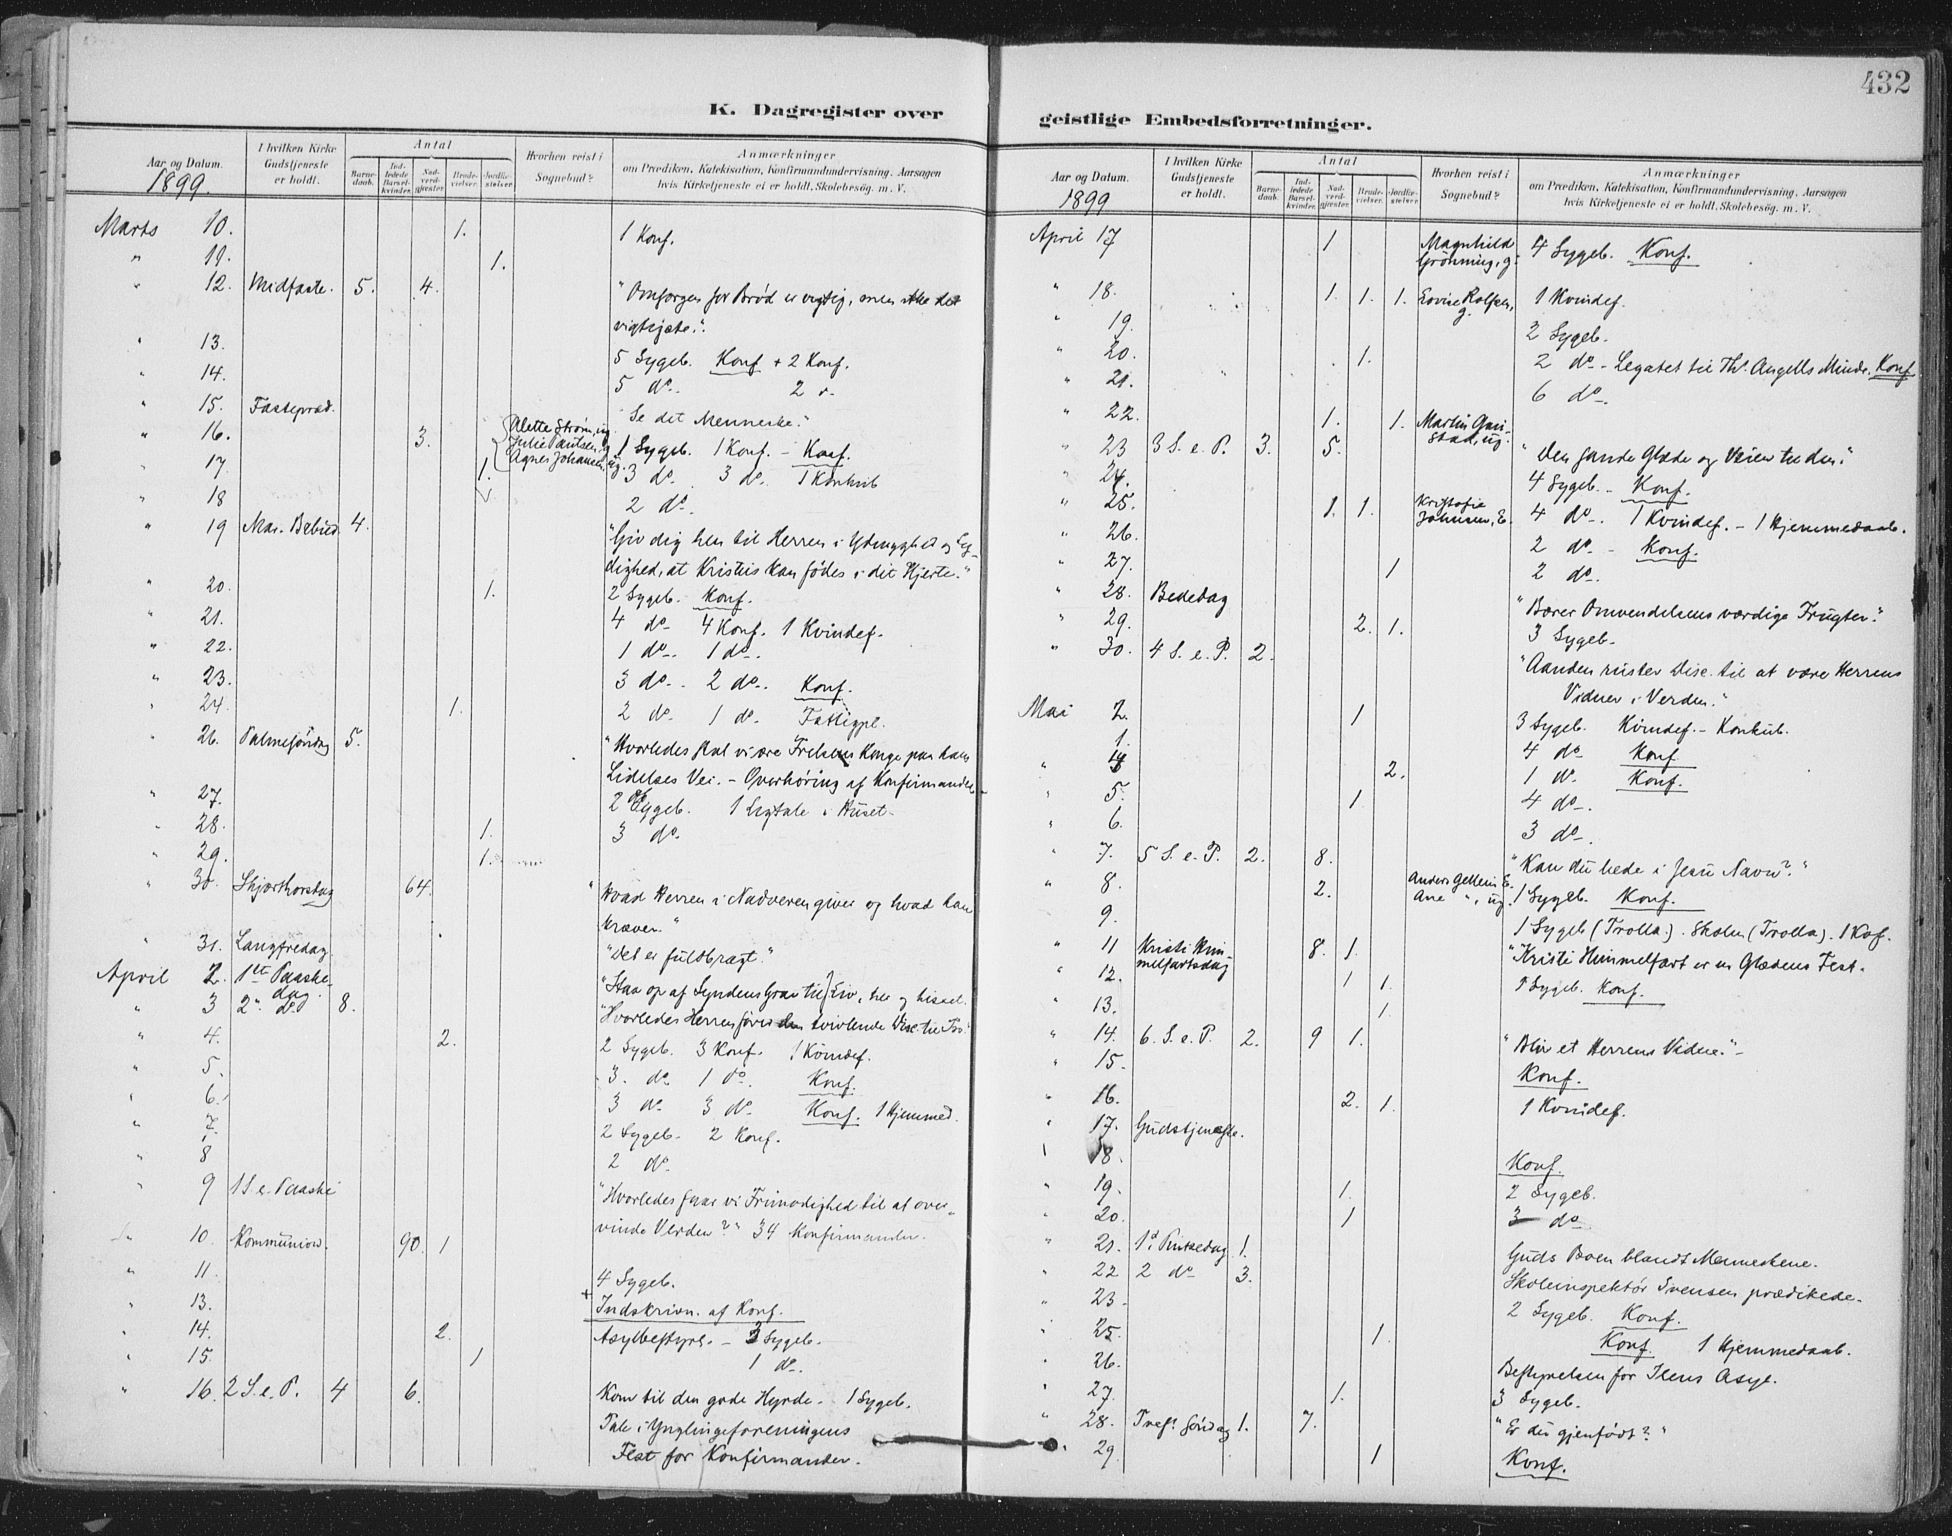 432
K. Dagregister over
geistlige Embedsforretninger.
Aar og Datum.
1899.
I hvilken Kirke Gudstjeneste er holdt.
Antal
Barnedaab.
Indledede Barselkvinder.
Nadverdgjester.
Brudevielser.
Jordfæstelser.
Hvorhen reist i Sognebud?
Anmærkninger
om Prædiken, Katekisation, Konfirmandundervisning, Aarsagen
hvis Kirketjeneste ei er holdt, Skolebesøg. m. V.
Marts 10. 1. 1 Konf.
" 11. 1.
" 12. Midfaste. 5. 4. "Omsorgen for Brød er vigtig, men ikke det
vigtigste."
" 13. 5 Sygeb. Konf + 2 Konf.
" 14. 5 do. 2
" 15. Fastepræd. "Se det Menneske."
" 16. 3. Alette Strøm, ug. Julie Paulsen, g. Agnes Johansen, ug. 1 Sygeb. 1 Konf. - Konf.
" 17. 1. 3 do. 3 do. 1 Konkub
" 18 2 do.
" 19 Mar. Bebud. 4. "Giv dig hen til Herren i Ydmyghed og Ly-
dighed, at Kristus kan fødes i dit Hjerte."
" 20. 1. 2 Sygeb. Konf.
" 21. 4 do 4 Konf. 1 Kvindef.
" 22. 1 do. 1 do.
" 23. 3 do. 2 do. Konf.
" 24. 1. 2 do. 1 do. Fattigpl.
" 26. Palmesöndag 5. "Hvorledes skal vi ære Frelsens Konge paa hans
Lidelses Vei. - Overhøring af Konfirmander
" 27. 2 Sygeb. 1 Ligtale i Huset.
" 28. 1. 3 do.
" 29. 1.
" 30. Skjærthorsdag 64. "Hvad Herren i Nadveren giver og hvad han
kræver."
" 31. Langfredag "Det er fuldbragt."
April 2. 1ste Paaskedag. "Staa op af Syndens Grav til Liv, her og hisset.
" 3 2. do 8. "Hvorledes Herren fører den tvivlende Disc. til Tro."
" 4. 2. 2 Sygeb. 3 Konf. 1 Kvindef.
" 5. 3. do 1 do. Konf.
" 6. 3 do. 3 do. Konf. 1 Hjemmed.
" 7. 2 Sygeb. 2 Konf.
" 8 2 do.
" 9 1 S. e. Paaske "Hvorledes faar vi Frimodighed til at over-
vinde Verden?" 34 Konfirmander.
" 10. Kommunion. 90. 1
" 11. 4 Sygeb.
" 13. Indskrivn. af Konf.
" 14. 2. Asylbestyrs. - 3 Sygeb.
" 15. 1 1 do.
" 16. 2 S. e. P. 4 6. Kom til den gode Hyrde. 1 Sygeb.
Tale i Ynglingeforeningens
Fest for Konfirmander.
Aar og Datum.
1899
I hvilken Kirke Gudstjeneste er holdt.
Antal
Barnedaab.
Indledede Barselkvinder.
Nadverdgjester.
Brudevielser.
Jordfæstelser.
Hvorhen reist i Sognebud?
Anmærkninger
om Prædiken, Katekisation, Konfirmandundervisning, Aarsagen
hvis Kirketjeneste ei er holdt, Skolebesøg. m. V.
April 17 1 Magnhild Grönning, g. 4 Sygeb. Konf.
" 18. 1. 1. 1. Rolfsen, g. 1 Kvindef.
" 19. 2 Sygeb.
" 20. 1. 2 do - Legatet til Th. Angells Minde. Konf
" 21. 6 do.
" 22. 1. 1. Martin Gustad, ug.
" 23 3 S. e. P. 3. 5. "Den sande Glæde og Veien til den."
" 24. 4 Sygeb. - Konf.
" 25. 1. 1. Kristofie Johnsen, E. 4 do. 1 Kvindef. - 1 Hjemmedaab.
" 26. 2 do - Konf.
" 27. 1 2 do.
" 28. Bededag "Bærer Omvendelsens værdige Frugter."
" 29. 2. 1. 3 Sygeb.
" 30. 4 S. e. P. 2. "Aanden ruster Disc. til at være Herrens
Vidner i Verden."
Mai 2. 1 3 Sygeb. Kvindef. - Konkub.
1. 4 do Konf
" 4 2. 1 do. Konf.
" 5. 1 4 do.
" 6. 3 do.
" 7. 5 S. e. P. 2. 8. "Kan du bede i Jesu Navn?"
" 8. 2. Anders E. Ane ", ug. 1 Sygeb. Konf.
9. 1 Sygeb (Trolla). Skolen (Trolla). 1 Kof.
" 11 Kristi Himmelfartsdag 8. 1. "Kristi Himmelfart er en Glædens Fest.
" 12. 1 1. Sygeb. Konf.
" 13. 1.
" 14. 6. S. e. P. 2. 9 1. "Bliv et Herrens Vidne."
" 15. Konf.
" 16. 2. 1. 1 Kvindef.
" 17. Gudstjeneste.
" 18. Konf.
" 19. 1. 2 Sygeb.
" 20. 1 3 do
" 21. 1. Pintsedag 1. Guds Boen blandt Menneskene.
" 22 2 do 3. Skoleinspektør Svensen prædikede.
" 23. 2 Sygeb. Konf.
" 25. 1. Konf. 1 Hjemmedaab.
" 26. Bestyrelsen for Ilens Asyl.
" 27. 1. 3 Sygeb.
" 28. Tref. Söndag 1. 7. "Er du gjenfødt?"
" 29. 1 Konf.